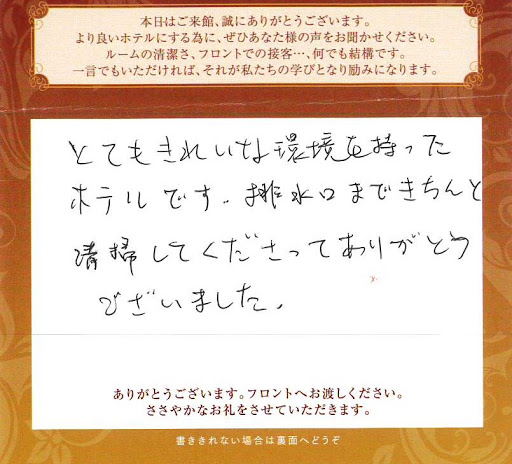 本日はご来館、誠にありがとうございます。
より良いホテルにする為に、ぜひあなた様の声をお聞かせください。
ルームの清潔さ、フロントでの接客…、何でも結構です。
一言でもいただければ、それが私たちの学びとなり励みになります。
とてもきれいな環境を持った
ホテルです。排水口まできちんと
清掃してくださってありがとう
ございました。
ありがとうございます。フロントへお渡しください。
ささやかなお礼をさせていただきます。
書ききれない場合は裏面へどうぞ